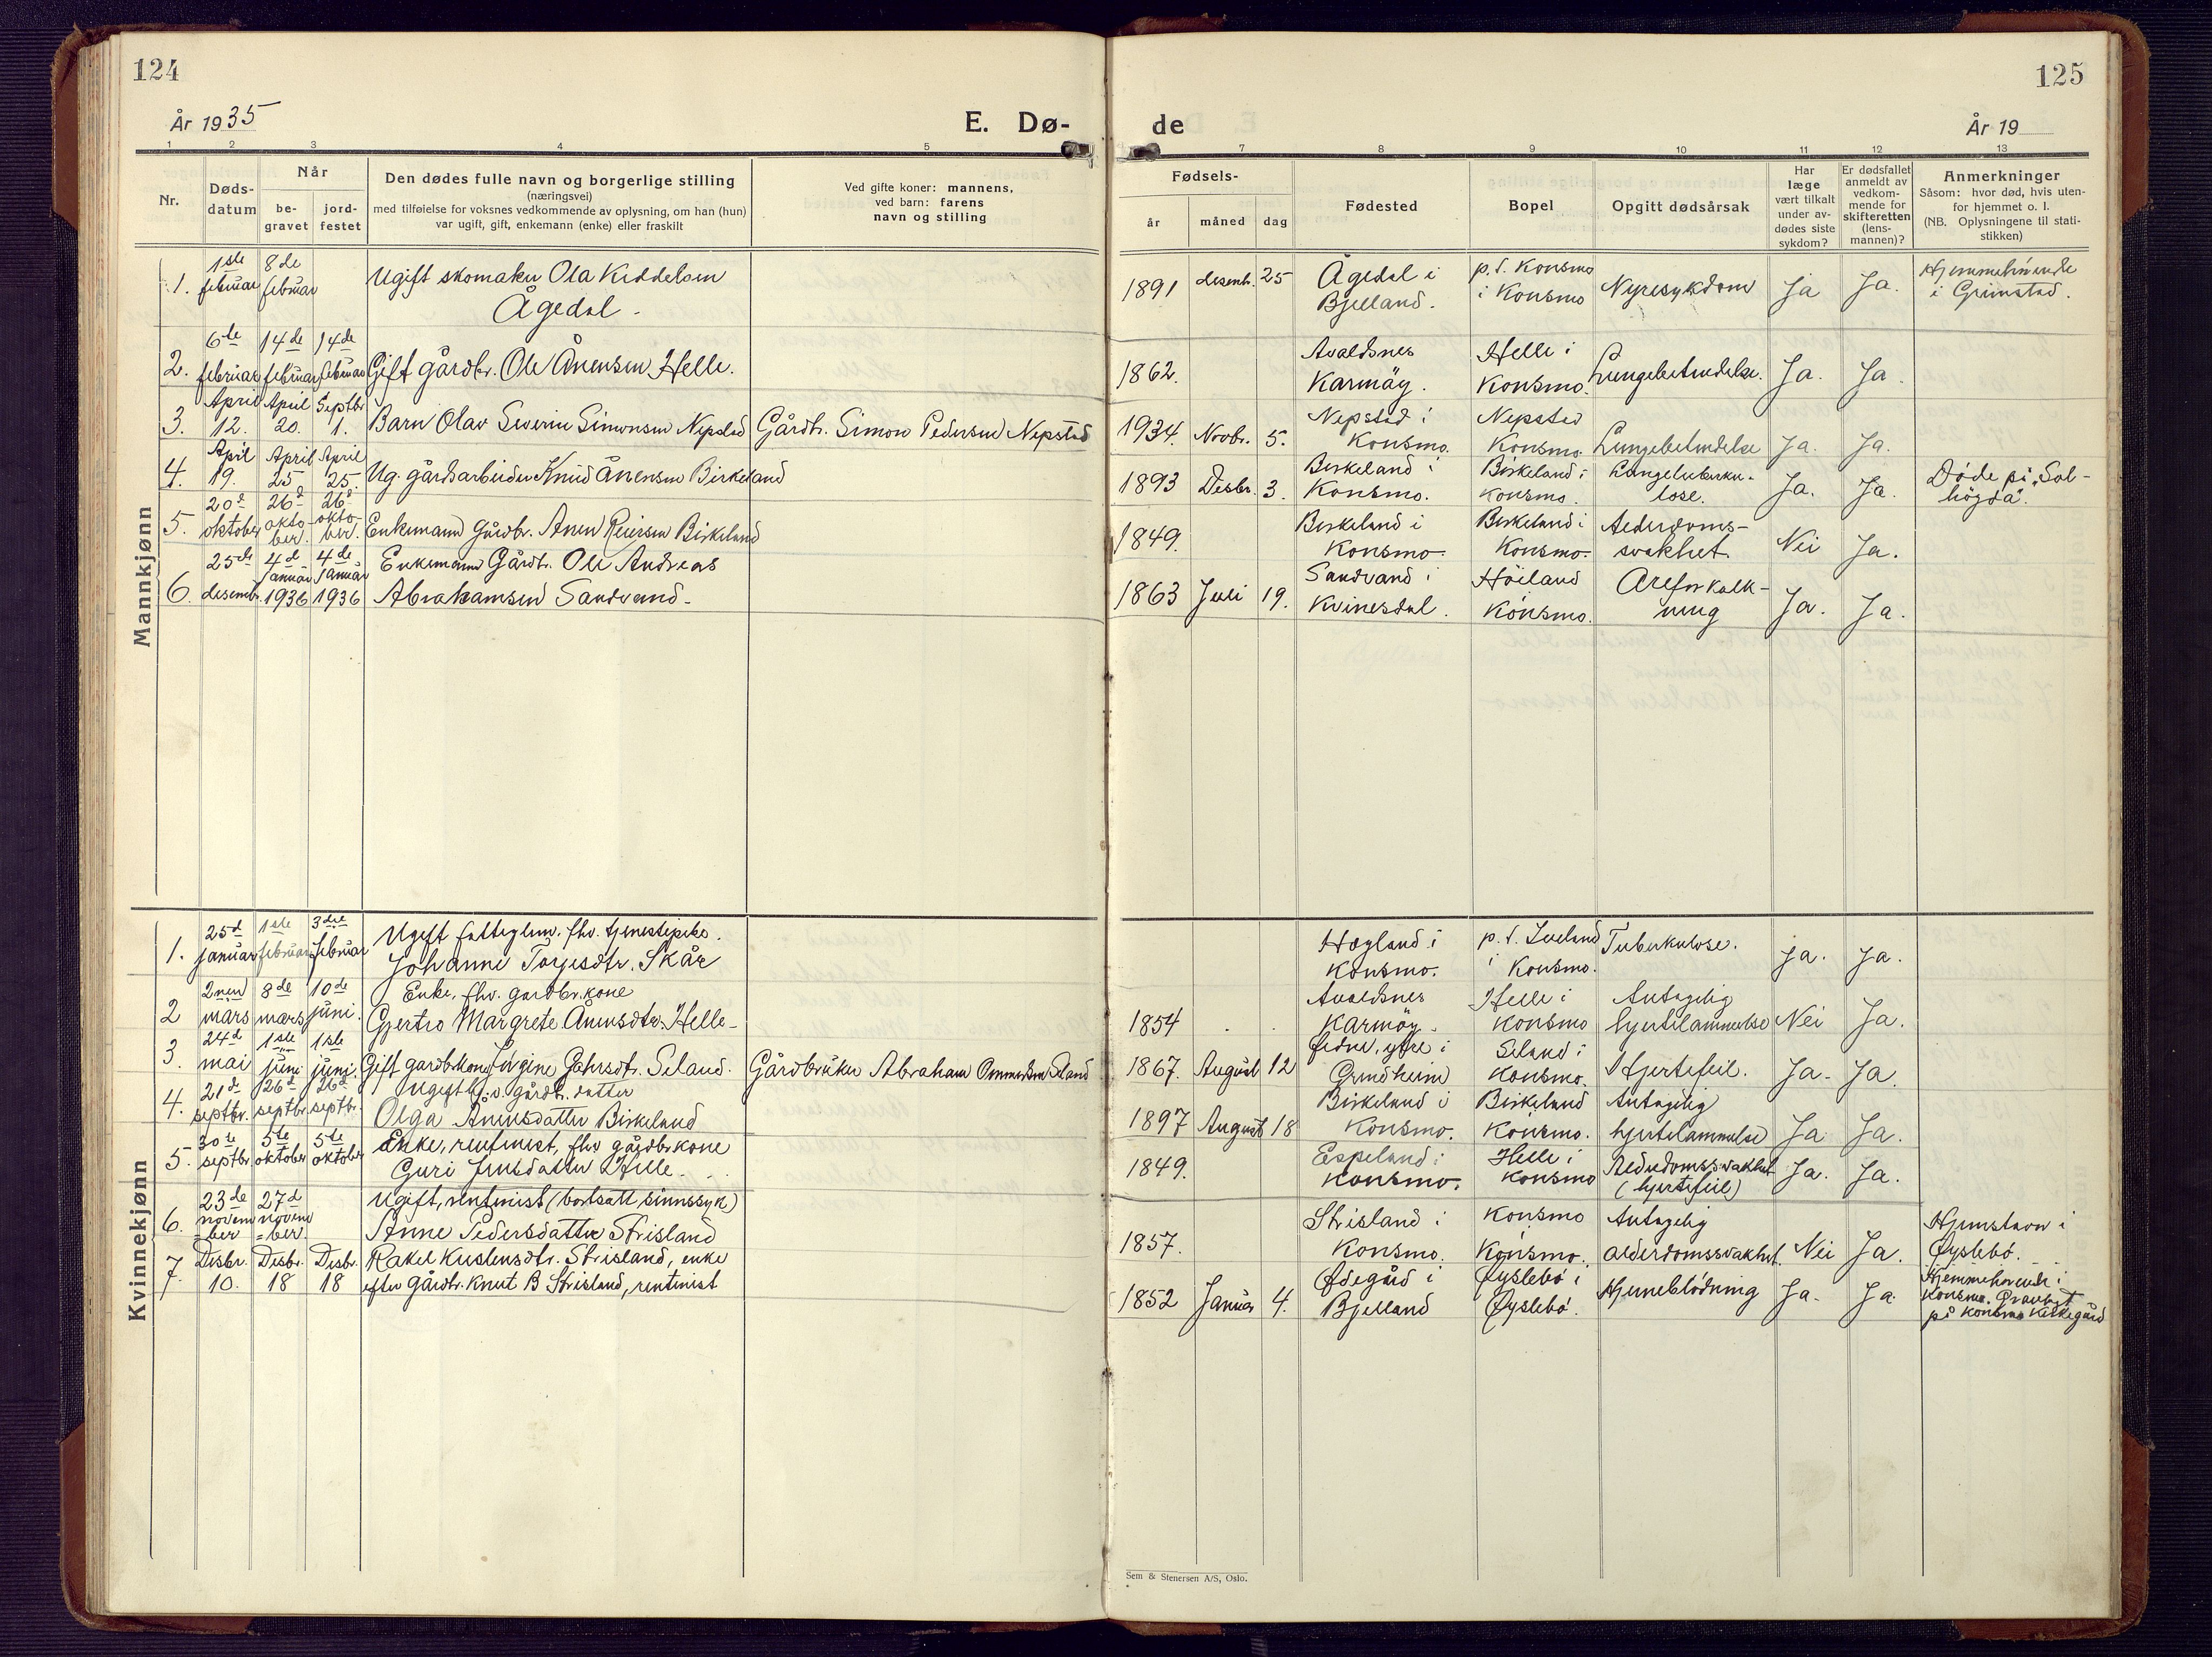 124
125
År 1935
E. Dø-
de
År 19
1
2
3
4
5
7
8
9
10
11
12
13
Nr.
Døds-
datum
Når
be-
gravet
jord-
festet
Den dødes fulle navn og borgerlige stilling
(næringsvei)
med tilføielse for voksnes vedkommende av oplysning, om han (hun)
var ugift, gift, enkemann (enke) eller fraskilt
Ved gifte koner: mannens,
ved barn: farens
navn og stilling
Fødsels-
år
måned
dag
Fødested
Bopel
Opgitt dødsårsak
Har
læge
vært tilkalt
under av-
dødes siste
sykdom?
Er dødsfallet
anmeldt av
vedkom-
mende for
skifteretten
(lens-
mannen)?
Anmerkninger
Såsom: hvor død, hvis uten-
for hjemmet o. l.
(NB. Oplysningene til stati-
stikken)
Mannkjønn
1.
1ste februar
8de februar
Ugift skomaker Ola Keddelsen
Ågedal -
1891 desemb. 25
Ågedal i
Bjelland.
p.t. Konsmo
i Konsmo
Nyresykdom
Ja
Ja.
Hjemmehörende
i Grimstad.
2.
6de februar
14de februar
14de februar
Gift gårdbr. Ole Ånensen Helle.
1862.
Avaldsnes
Karmöy.
Helle i
Konsmo.
Lungebetendelse.
Ja.
Ja
3.
April 12.
April 20.
Septbr 1.
Barn Olav Severin Simonsen Nepstad
Gårdbr. Simon Pedersen Nepstad
1934. Novbr. 5.
Nepstad i
Konsmo.
Nepstad
Konsmo.
Lungebetendelse
Ja.
Ja.
4.
April 19.
April 25
April 25.
Ug. gårdsarbeider Knud Ånensen Birkeland
1893 Desbr. 3.
Birkeland i
Konsmo.
Birkeland i
Konsmo.
Lungetuberku-
lose.
Ja.
Ja.
Döde på "Sol-
högda".
5.
20d oktober
26d oktober
26d oktober.
Enkemann Gårdbr. Anen Reiersen Birkeland
1849.
Birkeland i
Konsmo.
Birkeland i
Konsmo.
Aederdoms-
svakhet.
Nei
Ja.
6.
25de desembr.
4d Januar 1936
4de Januar 1936
Enkemann Gårdbr. Ole Andreas
Abrahamsen Sandvand -
1863 Juli 19.
Sandvand i
Kvinesdal.
Höiland
Konsmo.
Areforkalk-
ning
Ja.
Ja.
Kvinnekjønn
1.
25d januar
1ste februar
3die februar
Ugift fattiglem. fhv. tjenestepike.
Johanne Torjesdtr. Skår
Högland i
Konsmo.
p.t.
i Konsmo.
Tuberkulose.
Ja.
Ja.
2
2nen mars
8de mars
10de juni.
Enke, fhv. gardbr.kone
Gjertro Margrete Ånensdtr. Helle -
1854
Avaldsnes
Karmöy.
Helle i
Konsmo
Antagelig
hjertelammelse
Nei
Ja.
3.
24d mai
1ste juni
1ste juni.
Gift gardbr.kone Jörgine Gahrsdtr. Seland.
Gårdbruker Abraham Ommundsen Seland
1867. August 12
Fedne, ytre i
Grindheim
Seland i
Konsmo.
Hjertefeil.
Ja.
Ja.
4.
21d septbr.
26d septbr
26d septbr.
Ugift hj.v. gårdbr. datter
Olga Ånensdatter Birkeland
1897 August 18
Birkeland i
Konsmo.
Birkeland
Konsmo.
Antagelig
hjertelammelse
Ja
Ja.
5.
30te septbr
5te oktober
5te oktober
Enke, rentenist, fhv gårdbrkone
Guri Jensdatter Helle.
1849.
Espeland i
Konsmo.
Helle i
Konsmo
Aederdomssvakhet
(hjertefeil)
Ja.
Ja.
6.
23de november
27d november.
Ugift, rentenist (bortsatt sinnssyk)
Anne Pedersdatter Strisland
1857.
Strisland i
Konsmo.
Konsmo
Konsmo.
Antagelig
alderdomssvakhet.
Nei
Ja.
Hjemstavn i
Øyslebö.
7.
Desbr. 10.
Desbr. 18
Desbr. 18
Rakel Kristensdtr. Strisland, enke
efter Gårdbr. Knut B Strisland, rentenist
1852 Januar 4.
Ødegård i
Bjelland
Øyslebö i
Øyslebö.
Hjerneblödning
Ja.
Ja.
Hjemmehörende i
Konsmo. Gravlagt
på Konsmo Kirkegård
Sem & Stenersen A/S, Oslo.